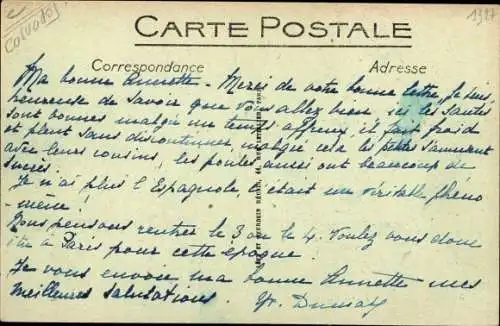 (Calvados)
CARTE POSTALE
Correspondance
Adresse
Ma bonne Annette - Merci de votre bonne lettre, je suis
heureuse de savoir que vous allez bien ici les santés
sont bonnes malgré un temps affreux, il fait froid
et pleut sans discontinuer, malgré cela les petits s'amusent
avec leurs cousins, les poules aussi ont beaucoup de
succès.
Je n'ai plus l'Espagnole c'était un véritable phéno
-mène!
Nous pensons rentrer le 3 ou le 4. Voulez vous donc
être à Paris pour cette époque.
Je vous envoie ma bonne Annette mes
meilleures salutations.